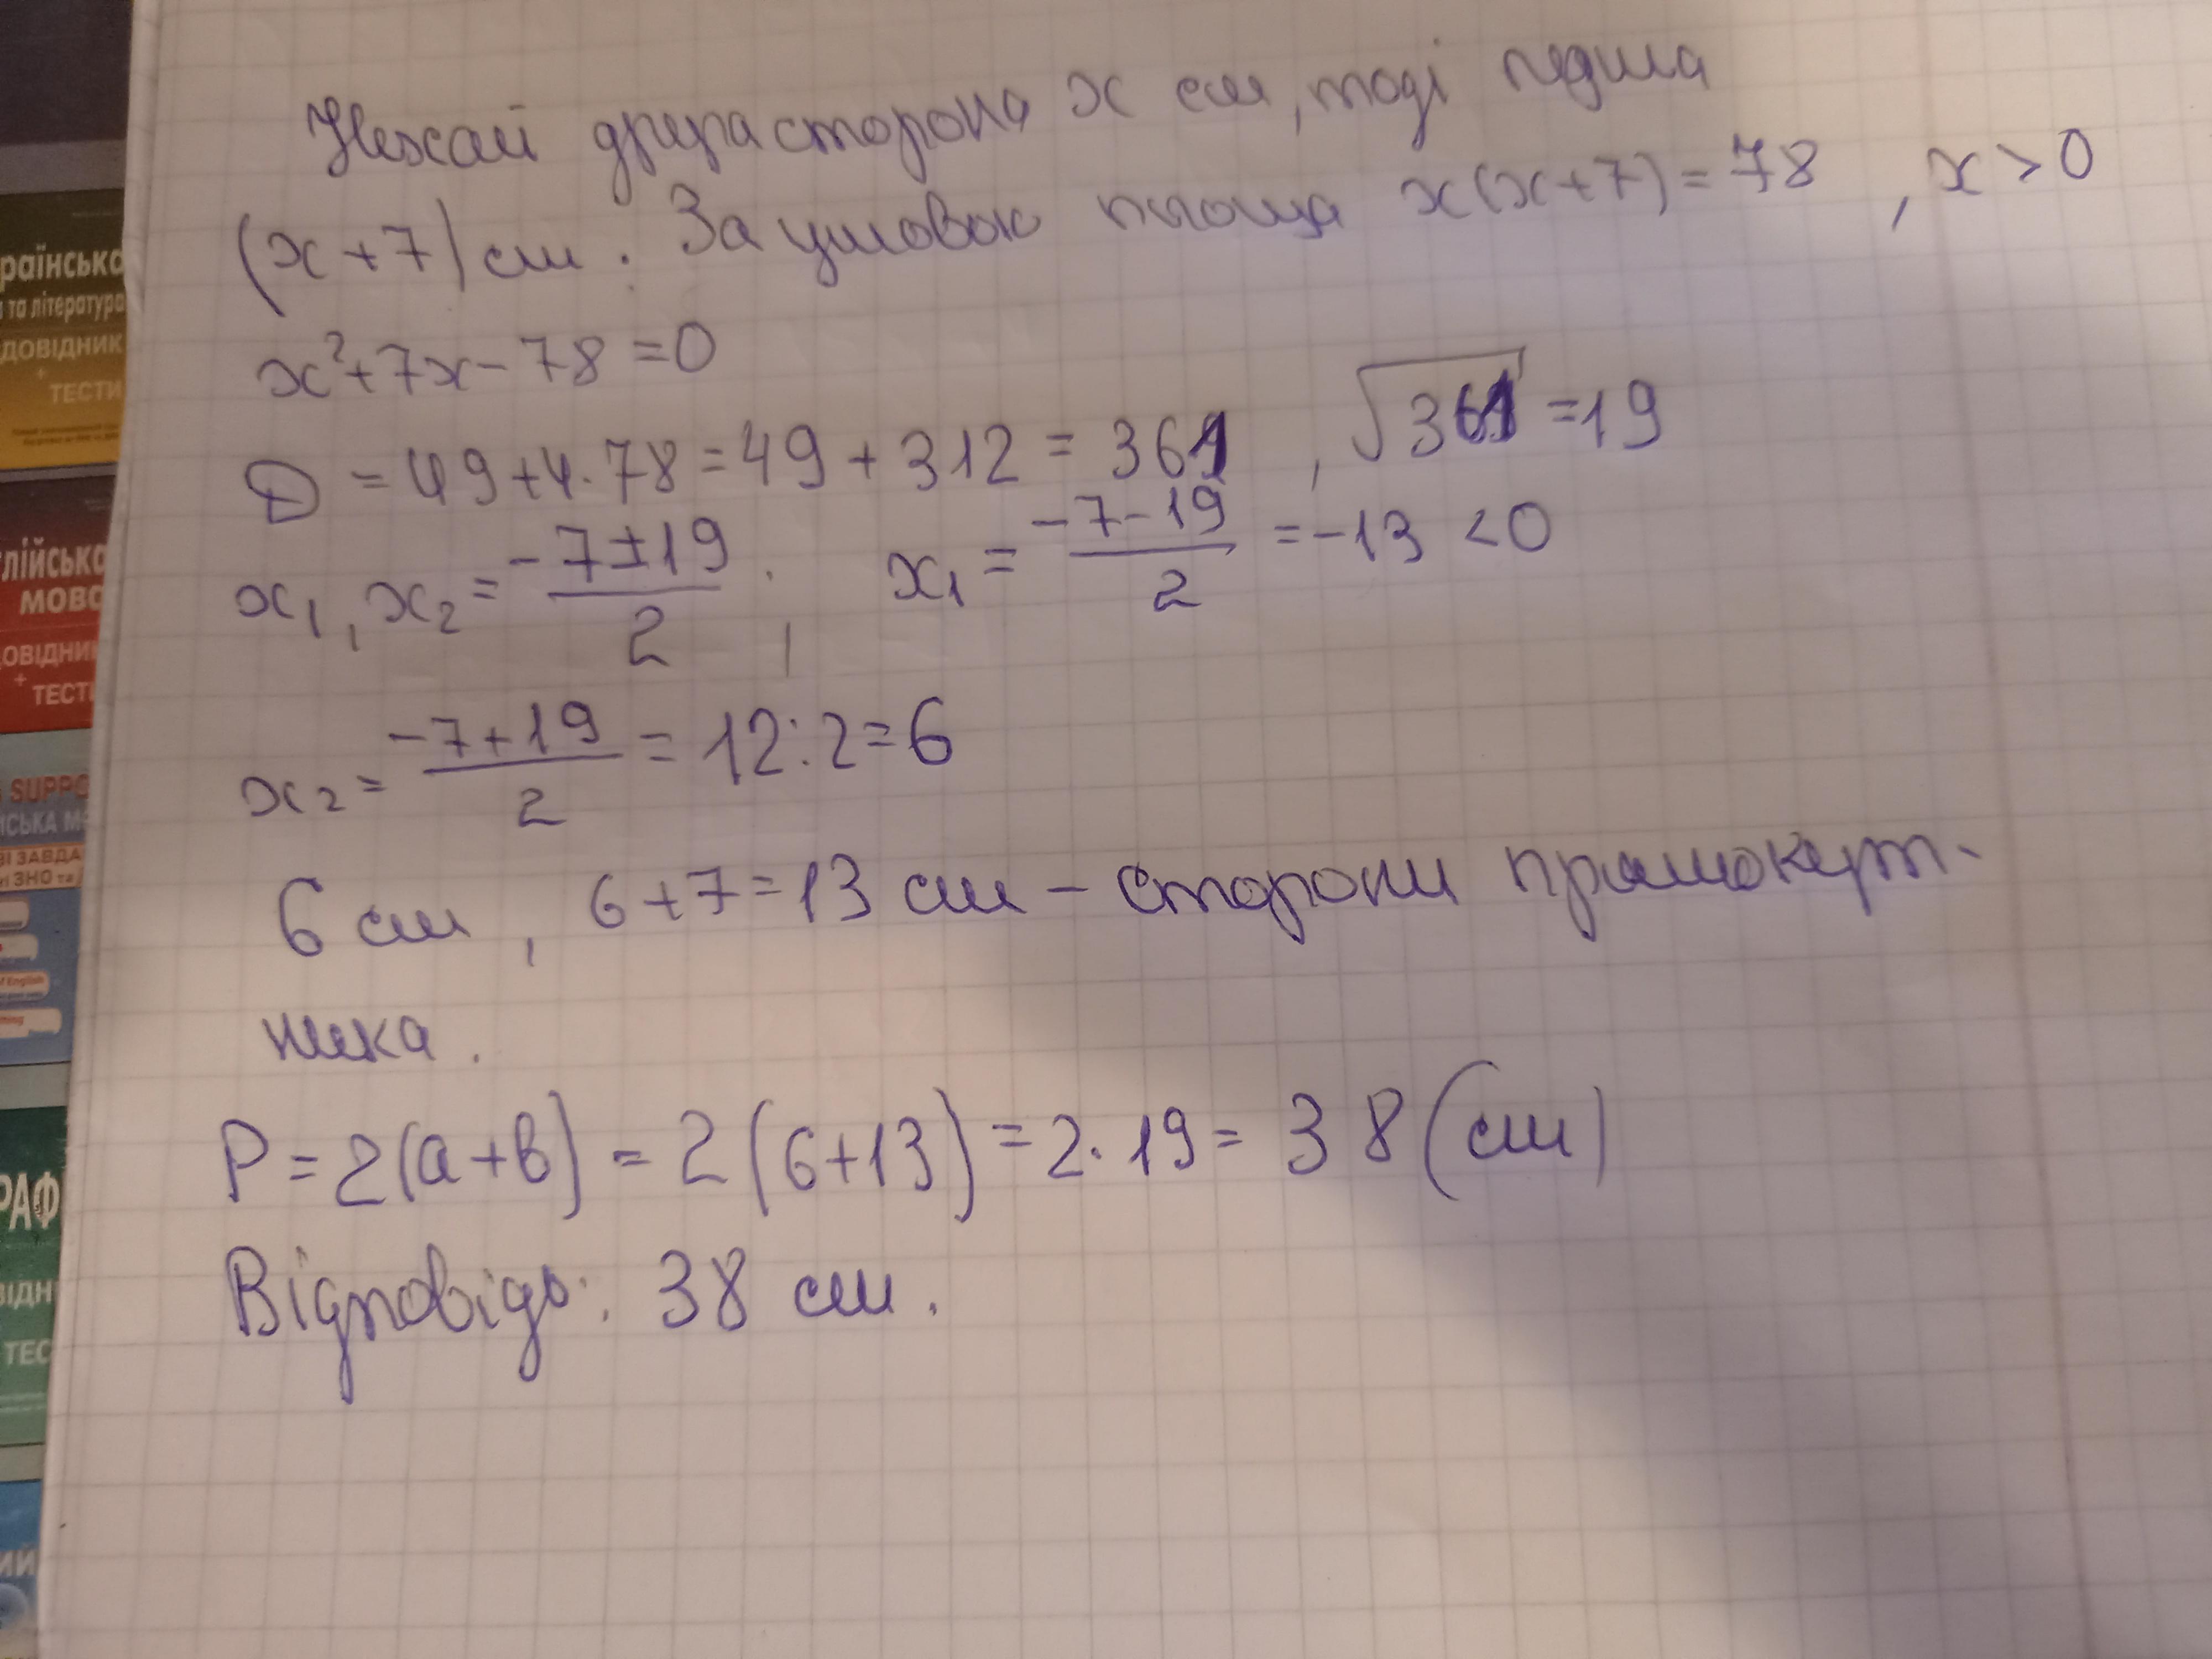 Нехай друга сторона x см, тоді перша
(x+7) см. За умовою площа x(x+7)=78, x>0
x²+7x-78=0
D=49+4·78=49+312=361, √361=19
x₁, x₂=(-7±19)/2; x₁=(-7-19)/2=-13<0
x₂=(-7+19)/2=12:2=6
6 см, 6+7=13 см - сторони прямокут-
ника.
P=2(a+b)=2(6+13)=2·19=38(см)
Відповідь: 38 см.
раїнська
та література
ДОВІДНИК
+
ТЕСТИ
лійська
МОВА
ОВІДНИК
+
ТЕСТИ
SUPPO
ЗАВДА
ЗНО та
of English
РАФ
ВІДН
ТЕС
ИЙ